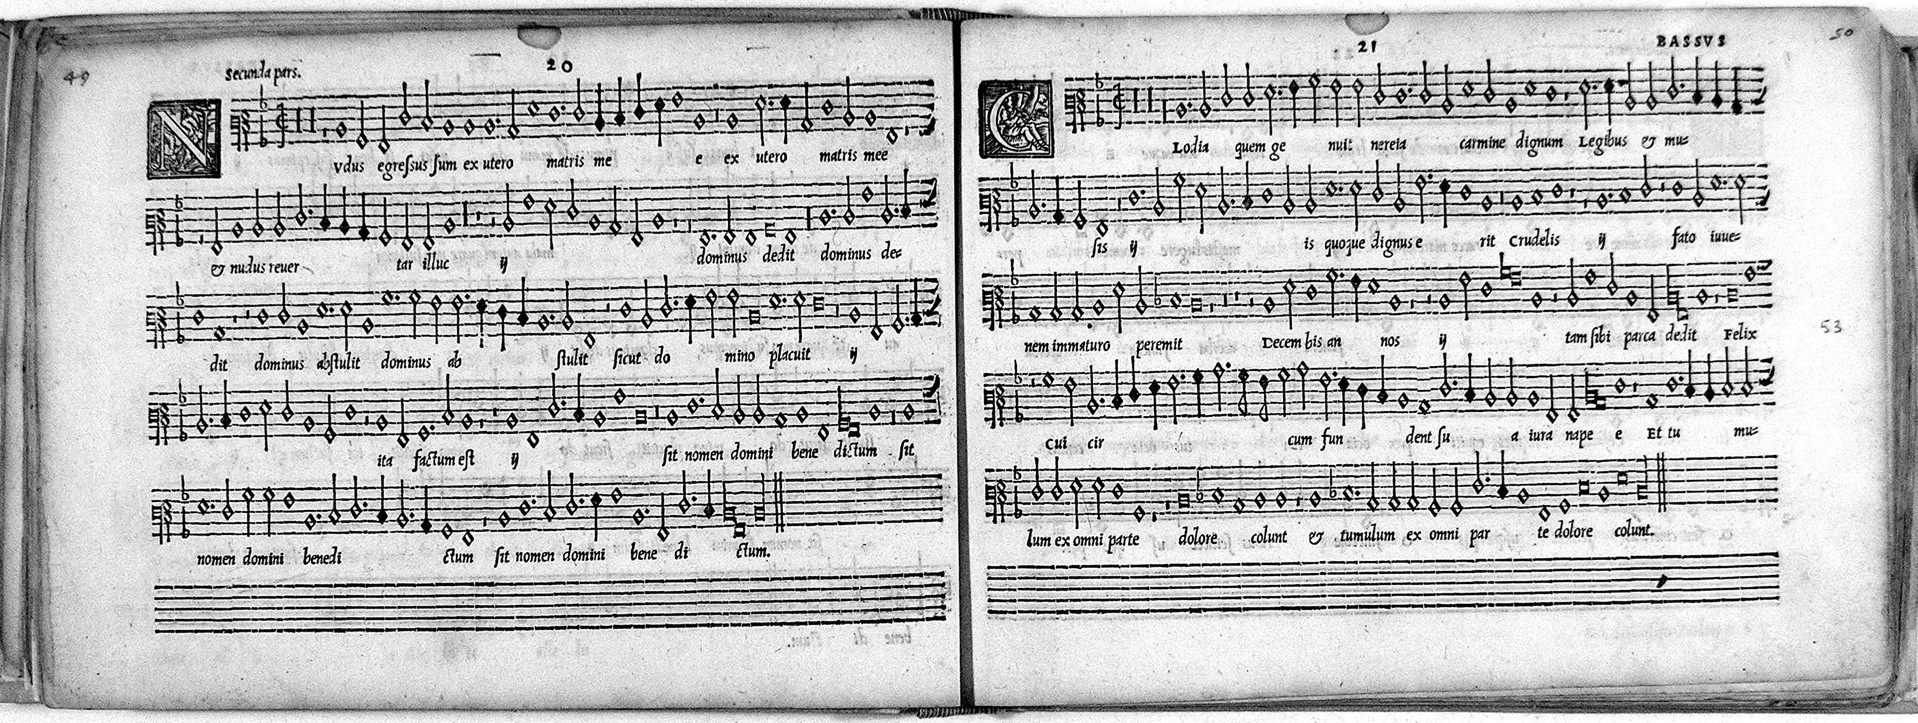 49
Secunda pars.
20
NVdus egressus sum ex utero matris me e ex utero matris mee
& nudus reuer tar illuc ij dominus dedit dominus de=
dit dominus abstulit dominus ab stulit sicut do mino placuit ij
ita factum est ij sit nomen domini bene dictum sit
nomen domini benedi ctum sit nomen domini bene di ctum.
21
BASSVS
50
CLodia quem ge nuit nereia carmine dignum Legibus & mu=
sis ij is quoque dignus e rit Crudelis ij fato iuue=
nem immaturo peremit Decem bis an nos ij tam sibi parca dedit Felix
53
cui cir cum fun dent su a iura nape e Et tu mu=
lum ex omni parte dolore colunt & tumulum ex omni par te dolore colunt.